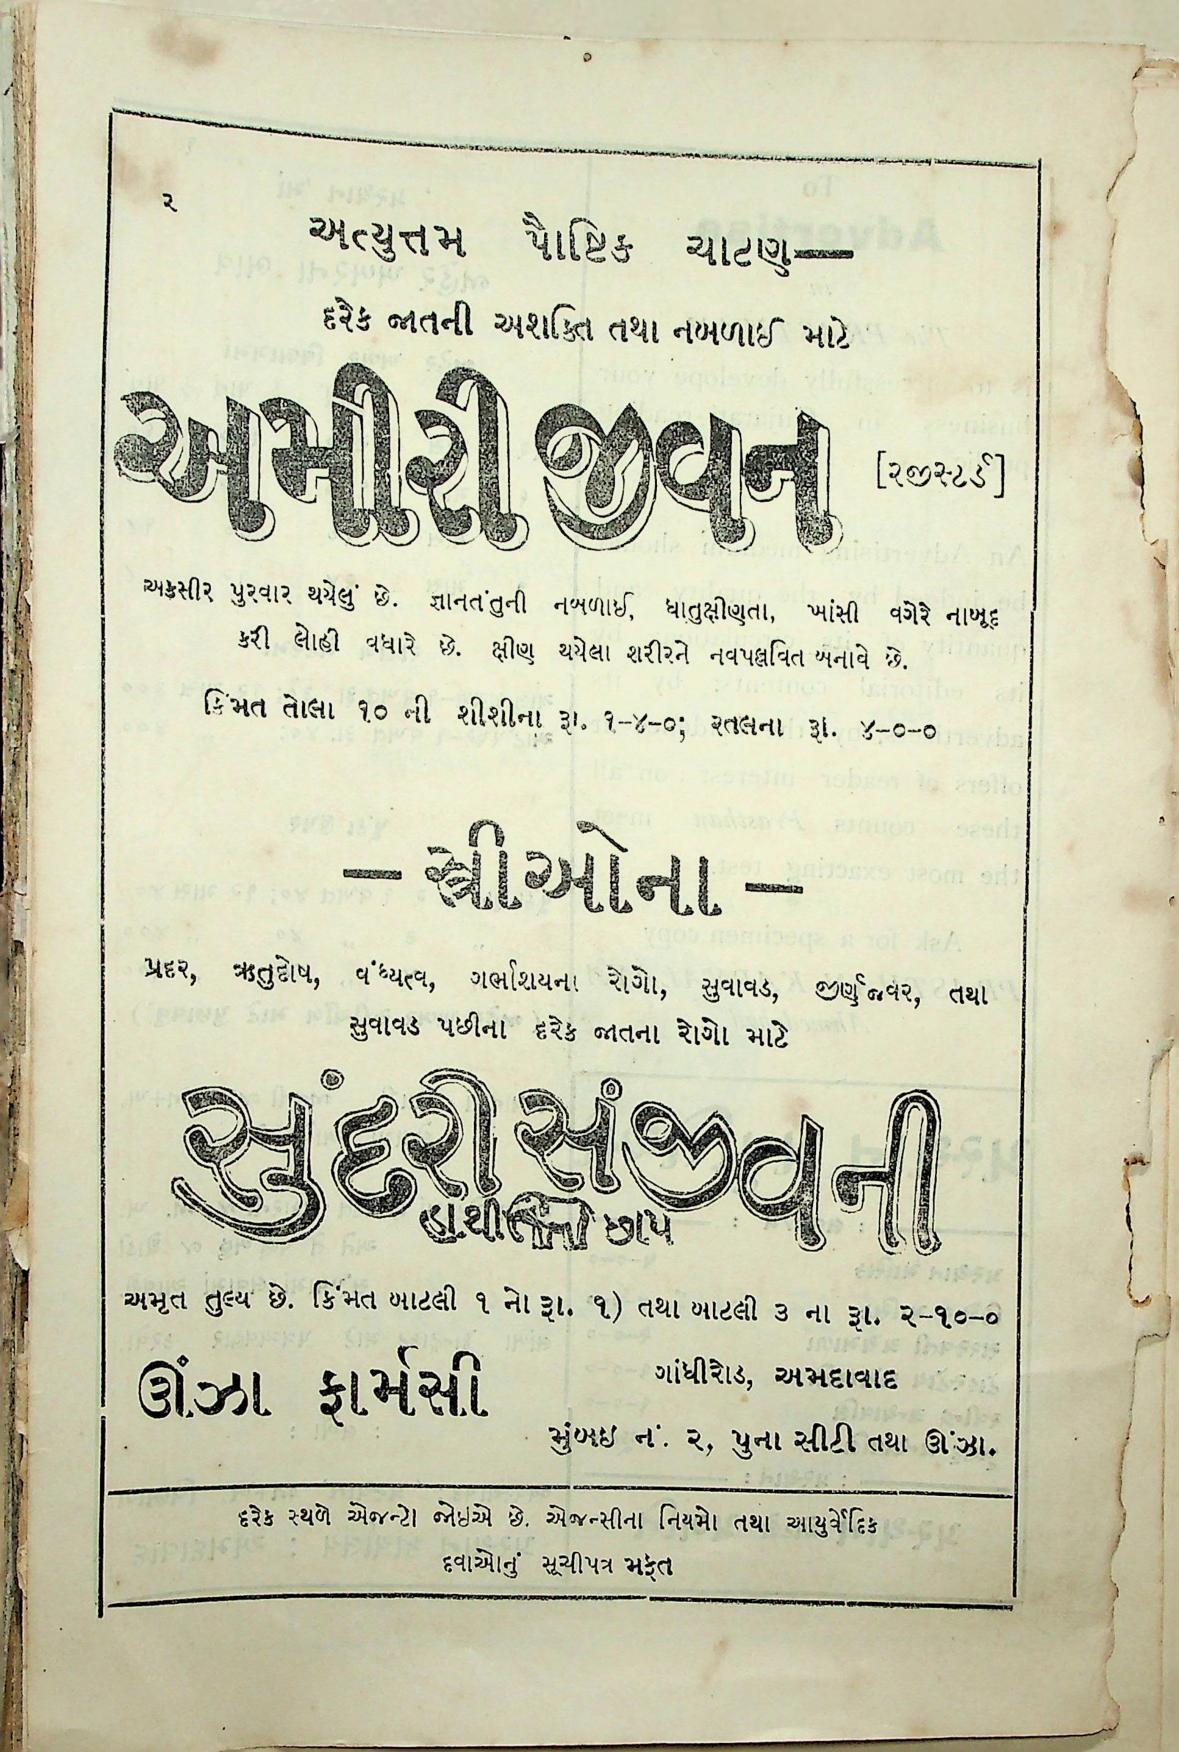 ૨
અત્યુત્તમ પૌષ્ટિક ચાટણ—
દરેક જાતની અશક્તિ તથા નબળાઈ માટે
અમીરી જીવન [રજીસ્ટર્ડ]
અકસીર પુરવાર થયેલું છે. જ્ઞાનતંતુની નબળાઈ, ધાતુક્ષીણતા, ખાંસી વગેરે નાબૂદ
કરી લોહી વધારે છે. ક્ષીણ થયેલા શરીરને નવપલ્લવિત બનાવે છે.
કિંમત તોલા ૧૦ ની શીશીના રૂા. ૧-૪-૦; રતલના રૂા. ૪-૦-૦
– સ્ત્રીઓના –
પ્રદર, ઋતુદોષ, વંધ્યત્વ, ગર્ભાશયના રોગો, સુવાવડ, જીર્ણજ્વર, તથા
સુવાવડ પછીના દરેક જાતના રોગો માટે
સુંદરી સંજીવની
હાથી છાપ
અમૃત તુલ્ય છે. કિંમત બાટલી ૧ નો રૂા. ૧) તથા બાટલી ૩ ના રૂા. ૨-૧૦-૦
ઊંઝા ફાર્મસી
ગાંધીરોડ, અમદાવાદ
મુંબઇ નં. ૨, પુના સીટી તથા ઊંઝા.
દરેક સ્થળે એજન્ટો જોઇએ છે. એજન્સીના નિયમો તથા આયુર્વેદિક
દવાઓનું સૂચીપત્ર મફત